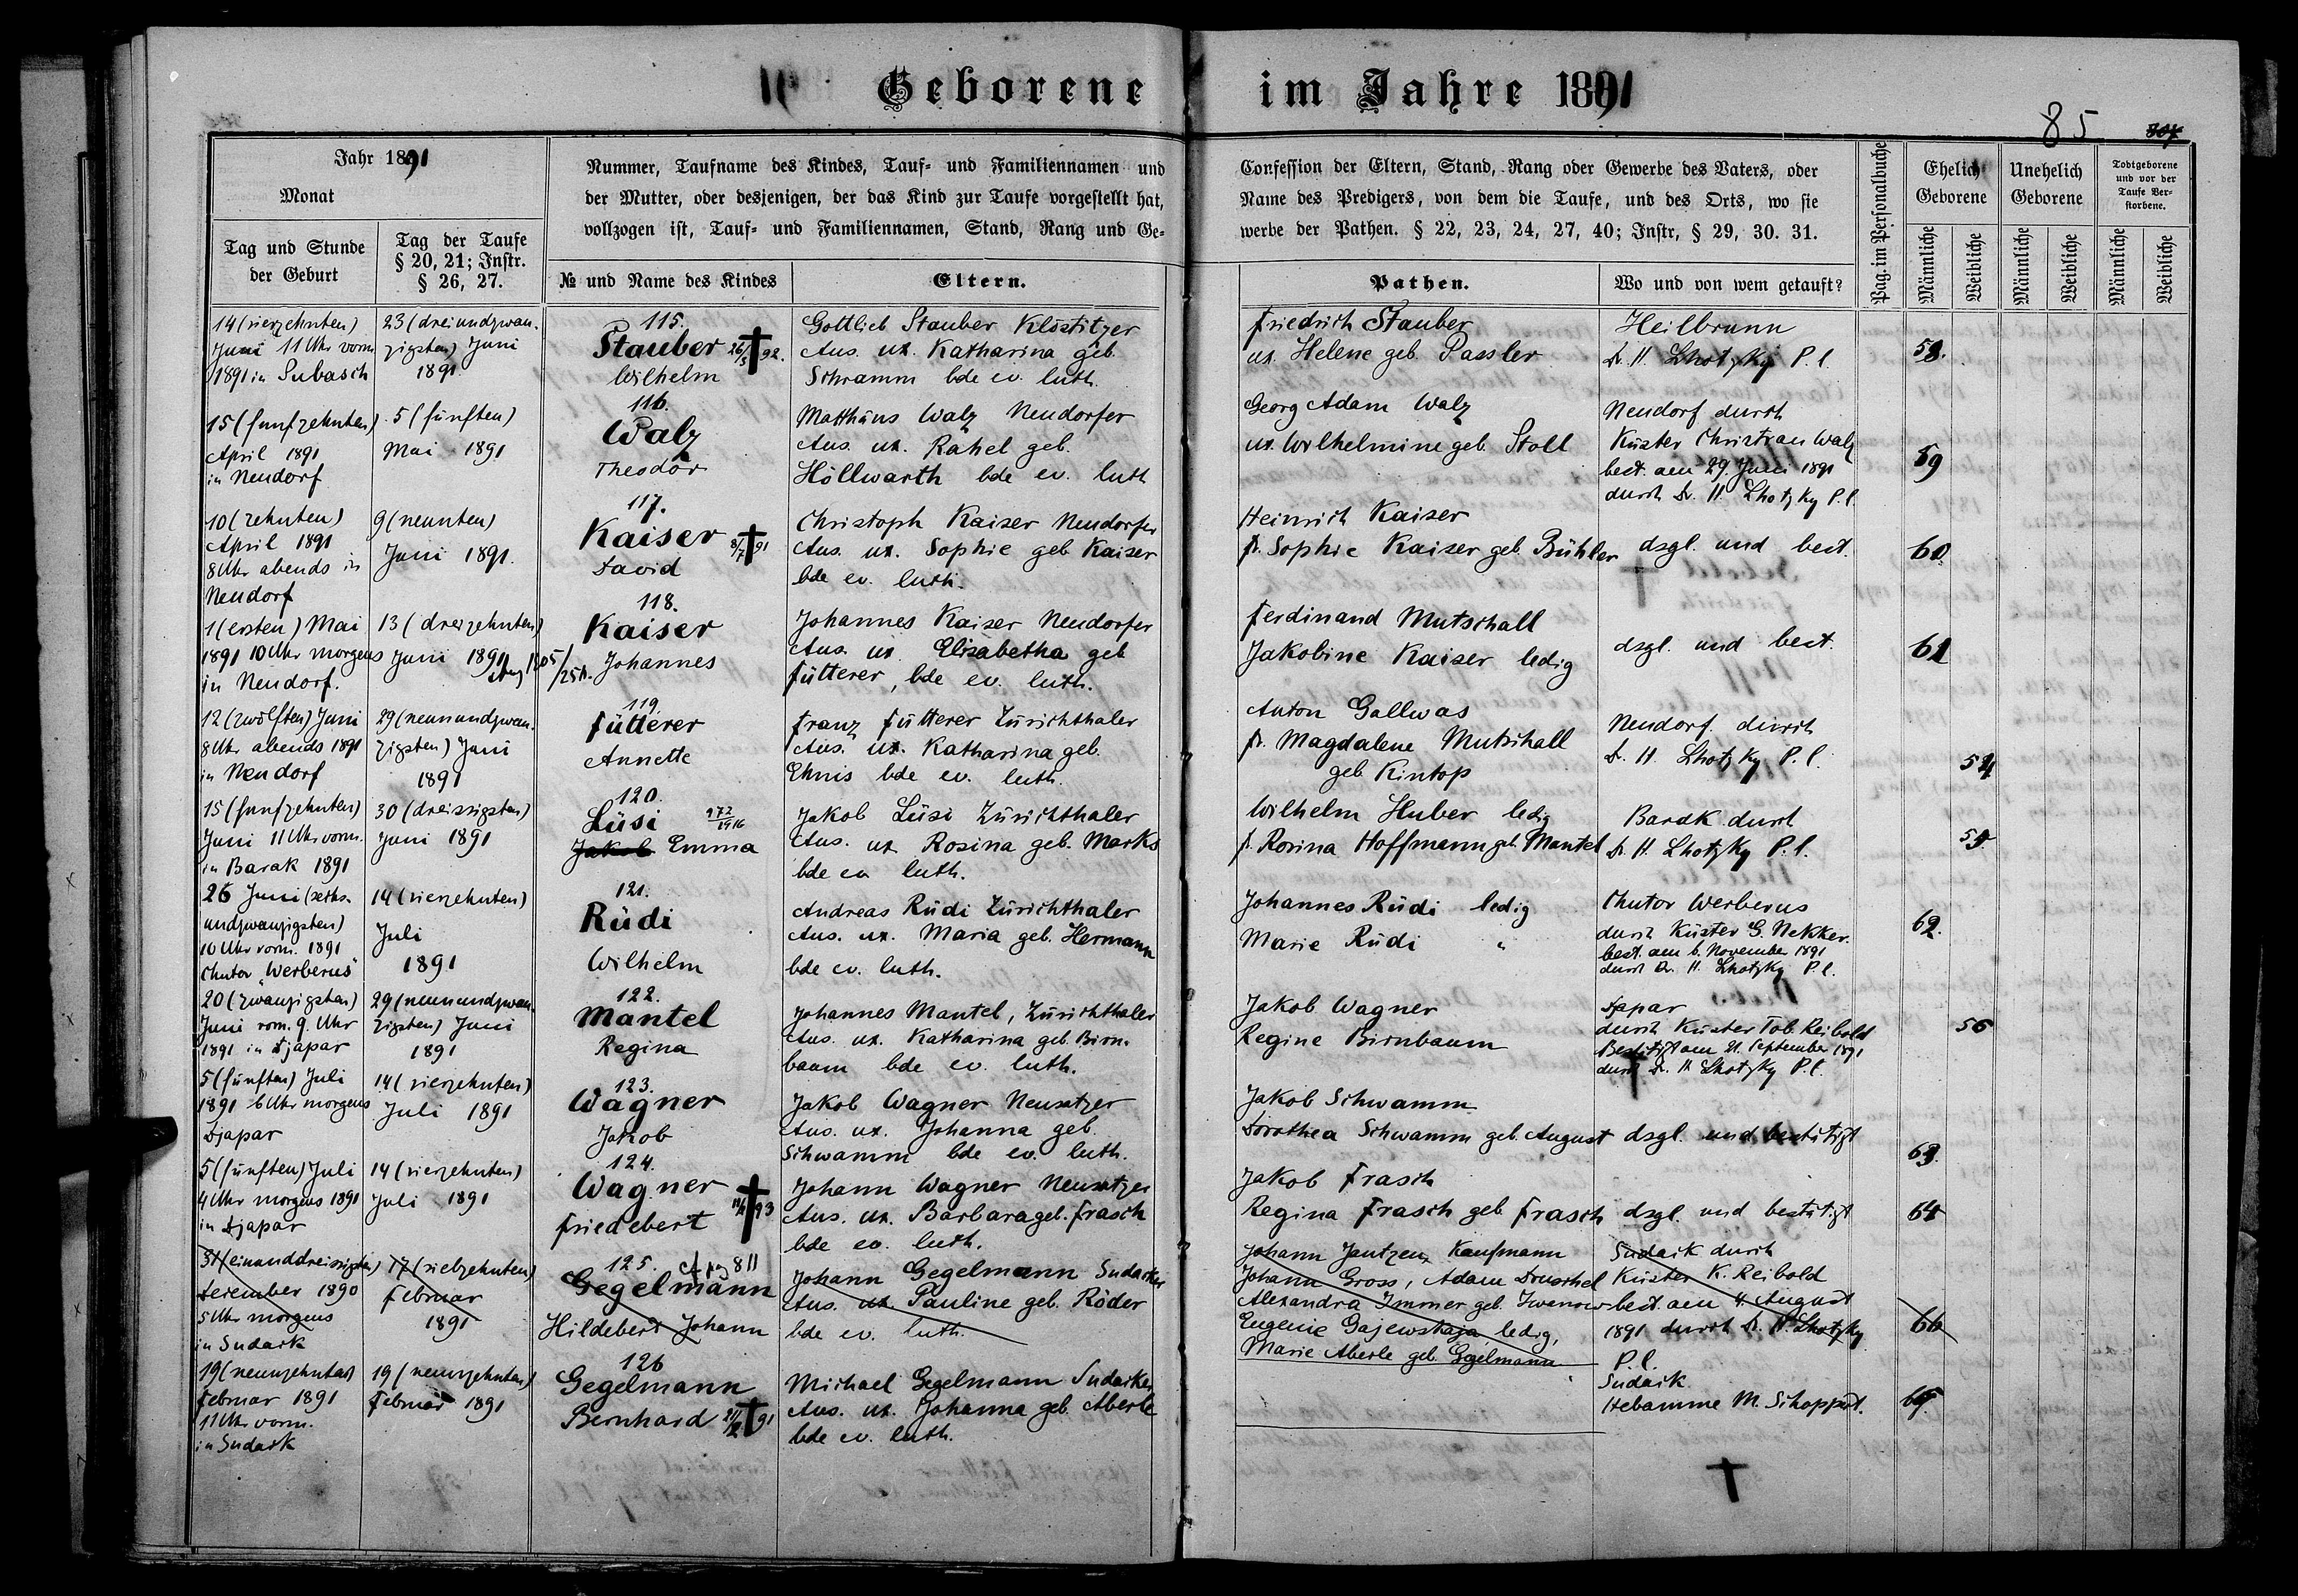 Geborene im Jahre 1891
85
Jahr 1891
Monat
Tag und Stunde
der Geburt
Tag der Taufe
§ 20, 21; Instr.
§ 26, 27.
Nummer, Taufname des Kindes, Tauf- und Familiennamen und
der Mutter, oder desjenigen, der das Kind zur Taufe vorgestellt hat,
vollzogen ist, Tauf- und Familiennamen, Stand, Rang und Ge-
№ und Name des Kindes
Eltern.
Confession der Eltern, Stand, Rang oder Gewerbe des Vaters, oder
Name des Predigers, von dem die Taufe, und des Orts, wo sie
werbe der Pathen. § 22, 23, 24, 27, 40; Instr, § 29, 30. 31.
Pathen.
Wo und von wem getauft?
Pag. im Personalbuche
Ehelich
Geborene
Unehelich
Geborene
Todtgeborene
und vor der
Taufe Ver-
storbene.
Männliche
Weibliche
Männliche
Weibliche
Männliche
Weibliche
14 (vierzehnten)
Juni 11 Uhr vorm
1891 in Subasch
23 (dreiundzwan-
zigsten) Juni
1891
115.
Stauber 26/5 † 92.
Wilhelm
Gottlieb Stauber Klöstitzer
Aus. ux. Katharina geb.
Schramm bde ev. luth.
Friedrich Stauber
ux. Helene geb. Passler
Heilbrunn
Dr. H. Lhotzky P. l.
58.
15 (funfzehnten)
April 1891
in Neudorf
5 (fünften)
Mai 1891
116.
Walz
Theodor
Matthäus Walz Neudorfer
Aus. ux. Rahel geb.
Höllwarth bde ev. luth
Georg Adam Walz
ux. Wilhelmine geb. Stoll
Neudorf durch
Küster Christian Walz
best. am 29. Juni 1891
durch Dr. H. Lhotzky P. l.
59
10 (zehnten)
April 1891
8 Uhr abends in
Neudorf
9 (neunten)
Juni 1891.
117.
Kaiser 8/7 † 91
David
Christoph Kaiser Neudorfer
Aus. ux. Sophie geb Kaiser
bde ev. luth.
Heinrich Kaiser
fr. Sophie Kaiser geb. Bühler
dsgl. und best.
60
1 (ersten) Mai
1891 10 Uhr morgens
in Neudorf.
13 (dreizehnten)
Juni 1891
118.
Kaiser
Johannes
Johannes Kaiser Neudorfer
Aus. ux. Elisabetha geb
Fütterer, bde ev. luth.
Ferdinand Mutschall
Jakobine Kaiser ledig
dsgl. und best.
61
12 (zwölften) Juni
8 Uhr abends 1891
in Neudorf
29 (neunundzwan-
zigsten) Juni
1891
119.
Fütterer
Annette
Franz Fütterer Zürichthaler
Aus. ux. Katharina geb.
Ehnis bde ev. luth.
Anton Gallwas
fr. Magdalene Mutschall
geb Kintop
Neudorf durch
Dr. H. Lhotzky P. l.
54
15 (funfzehnten)
Juni 11 Uhr vorm.
in Barak 1891
30 (dreissigsten)
Juni 1891
120.
Lüsi 972/1916
Jakob Emma
Jakob Lüsi Zürichthaler
Aus. ux Rosina geb. Marks
bde ev luth.
Wilhelm Huber ledig
fr. Rosina Hoffmann geb. Mantel
Barak durch
Dr. H. Lhotzky P. l.
55
26 Juni (sechs-
undzwanzigsten)
10 Uhr vorm. 1891
Chutor "Werberus"
14 (vierzehnten)
Juli
1891
121.
Rüdi
Wilhelm
Andreas Rüdi Zürichthaler
Aus. ux. Maria geb. Hermann
bde ev. luth.
Johannes Rüdi ledig
Marie Rüdi "
Chutor Werberus
durch Küster G. Nekker.
best. am 6. November 1891
durch Dr. H. Lhotzky P. l.
62.
20 (zwanzigsten)
Juni vorm. 9. Uhr
1891 in Djapar
29 (neunundzwan-
zigsten) Juni
1891
122.
Mantel
Regina
Johannes Mantel, Zürichthaler
Aus. ux. Katharina geb. Birn-
baum bde ev. luth.
Jakob Wagner
Regine Birnbaum
Djapar
durch Küster Tob. Reibold
Bestätigt am 21. September 1891
durch Dr. H. Lhotzky P. l.
56
5 (fünften) Juli
1891 6 Uhr morgens
Djapar
14 (vierzehnten)
Juli 1891
123.
Wagner
Jakob
Jakob Wagner Neusatzer
Aus. ux. Johanna geb.
Schwamm bde ev. luth.
Jakob Schwamm
Dorothea Schwamm geb. August
dsgl. und bestätigt
63.
5 (fünften) Juli
4 Uhr morgens 1891
in Djapar
14 (vierzehnten)
Juli 1891
124.
Wagner † 93
Friedebert
Johann Wagner Neusatzer
Aus. ux. Barbara geb. Frasch
bde ev. luth.
Jakob Frasch
Regina Frasch geb Frasch
dsgl. und bestätigt
64
31 (einunddreissigsten)
Dezember 1890
5 Uhr morgens
in Sudack
17 (siebzehnten)
Februar
1891
125. cf pag 811
Gegelmann
Hildebert Johann
Johann Gegelmann Sudacker
Aus. ux. Pauline geb. Röder
bde ev. luth.
Johann Jantzen, Kaufmann
Johann Gross, Adam Druschel
Alexandra Immer geb. Iwenow
Eugenie Gajewskaja, ledig,
Marie Aberle geb. Gegelmann
Sudack durch
Küster K. Reibold
best. am 4. August
1891 durch Dr. H. Lhotzky
P. l.
66
19 (neunzehnten)
Februar 1891
11 Uhr vorm.
in Sudack
19 (neunzehnten)
Februar 1891
126
Gegelmann
Bernhard † 91
Michael Gegelmann Sudacker
Aus. ux. Johanna geb. Aberle
bde ev. luth.
Sudack
Hebamme M. Schoppert.
65